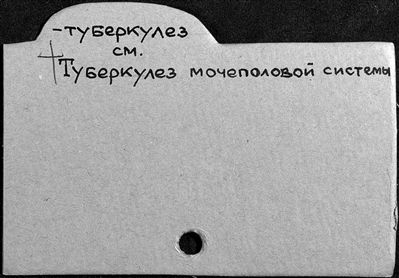 -туберкулез
см.
Туберкулез мочеполовой системы